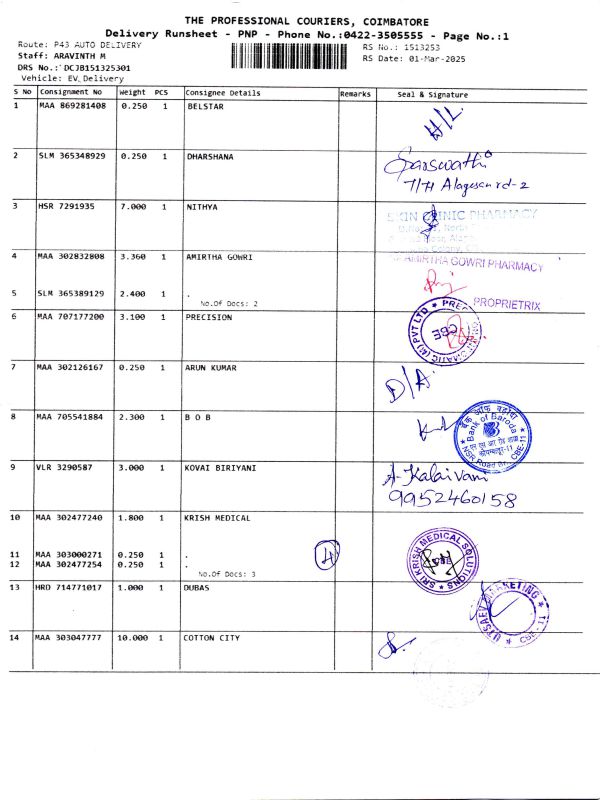 THE PROFESSIONAL COURIERS, COIMBATORE
Delivery Runsheet - PNP - Phone No.:0422-3505555 - Page No.:1
Route: P43 AUTO DELIVERY RS No.: 1513253
Staff: ARAVINTH M RS Date: 01-Mar-2025
DRS No.: DCJB151325301
Vehicle: EV_Delivery
S No Consignment No Weight PCS Consignee Details Remarks Seal & Signature
1 MAA 869281408 0.250 1 BELSTAR
H/L
2 SLM 365348929 0.250 1 DHARSHANA
Sarswathi
7/71 Alagesan rd-2
3 HSR 7291935 7.000 1 NITHYA
SKIN CLINIC PHARMACY
4 MAA 302832808 3.360 1 AMIRTHA GOWRI
AMIRTHA GOWRI PHARMACY
5 SLM 365389129 2.400 1 .
No.Of Docs: 2
PROPRIETRIX
6 MAA 707177200 3.100 1 PRECISION
(4) PVT LTD * PREC
CBE
7 MAA 302126167 0.250 1 ARUN KUMAR
D/A.
8 MAA 705541884 2.300 1 B O B
बैंक ऑफ़ बड़ौदा
Bank of Baroda
कोयम्बत्तूर-11
NSR Road Br., CBE-11
9 VLR 3290587 3.000 1 KOVAI BIRIYANI
A. Kalaivani
9952460158
10 MAA 302477240 1.800 1 KRISH MEDICAL
11 MAA 303000271 0.250 1 .
12 MAA 302477254 0.250 1 .
No.Of Docs: 3
4
SRI KRISH MEDICAL SOLUTIONS
CBE
13 HRO 714771017 1.000 1 DUBAS
UTSAEV MARKETING
CBE-11
14 MAA 303047777 10.000 1 COTTON CITY